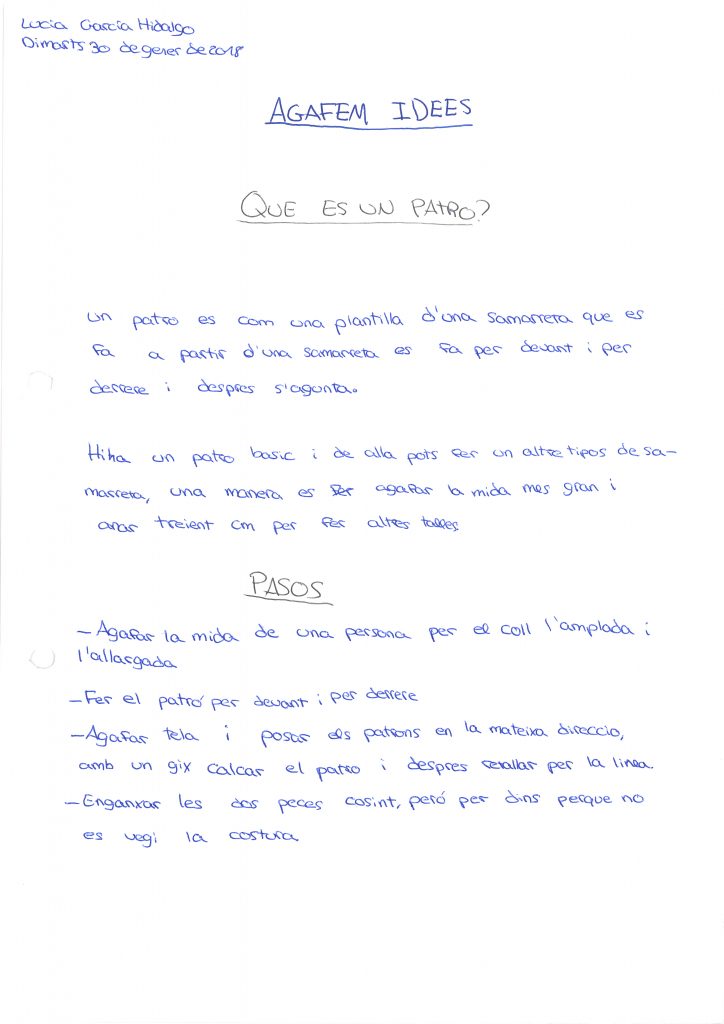 Lucia García Hidalgo
Dimarts 30 de gener de 2018
AGAFEM IDEES
QUE ES UN PATRO?
un patro es com una plantilla d'una samarreta que es
fa a partir d'una samarreta es fa per devant i per
derrere i despres s'agunta.
Hiha un patro basic i de alla pots fer un altre tipos de sa-
marreta, una manera es fer agafar la mida mes gran i
anar treient cm per fer altres talles
PASOS
- Agafar la mida de una persona per el coll l'amplada i
l'allargada
- Fer el patró per devant i per derrere
- Agafar tela i posar els patrons en la mateixa direccio,
amb un gix calcar el patro i despres retallar per la linea.
- Enganxar les dos peces cosint, peró per dins perque no
es vegi la costura.